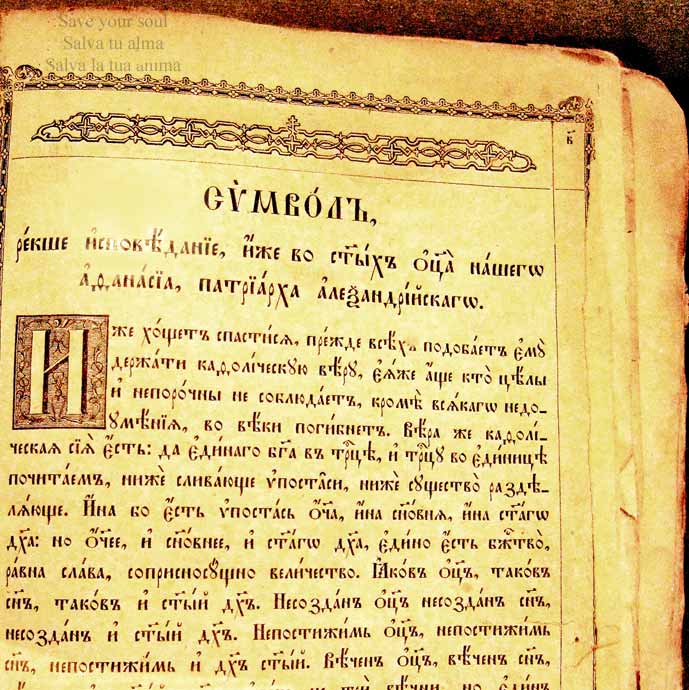 Save your soul
Salva tu alma
Salva la tua anima
в҃
СѶ́МВО́ЛЪ,
ре́кше и҆сповѣ́данїе, и҆́же во ст҃ы́хъ ѻ҆ц҃а̀ на́шегѡ
а҆ѳана́сїа, патрїа́рха а҆леѯандрі́йскагѡ.
И҆́же хо́щетъ спасти́сѧ, пре́жде всѣ́хъ подоба́етъ є҆мꙋ̀
держа́ти каѳолі́ческꙋю вѣ́рꙋ, є҆ѧ́же а҆́ще кто̀ цѣ́лы
и҆ непоро́чны не соблюда́етъ, кромѣ̀ всѧ́кагѡ недо-
ꙋмѣ́нїѧ, во вѣ́ки поги́бнетъ. Вѣ́ра же каѳолі́-
ческаѧ сїѧ̀ є҆́сть: да є҆ди́наго бг҃а въ трⷪ҇цѣ, и҆ трⷪ҇цꙋ во є҆ди́ницѣ
почита́емъ, нижѐ слива́юще ѵ҆поста̑си, нижѐ сꙋщество̀ раздѣ-
лѧ́юще. И҆́на бо є҆́сть ѵ҆поста́сь ѻ҆́ч҃а, и҆́на сн҃о́внѧ, и҆́на ст҃а́гѡ
дх҃а: но ѻ҆́ч҃ее, и҆ сн҃о́внее, и҆ ст҃а́гѡ дх҃а, є҆ди́но є҆́сть бж҃тво̀,
ра́вна сла́ва, соприсносꙋ́щно вели́чество. Ꙗ҆ко́въ ѻ҆ц҃ъ, тако́въ
сн҃ъ, тако́въ и҆ ст҃ы́й дх҃ъ. Несозда́нъ ѻ҆ц҃ъ несозда́нъ сн҃ъ,
несозда́нъ и҆ ст҃ы́й дх҃ъ. Непостижи́мь ѻ҆ц҃ъ, непостижи́мь
сн҃ъ, непостижи́мь и҆ дх҃ъ ст҃ы́й. Вѣ́ченъ ѻ҆ц҃ъ, вѣ́ченъ сн҃ъ,
вѣ́чни, но є҆ди́нъ